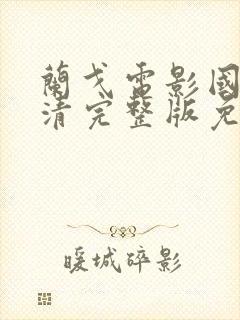 蘭戈電影國
清完整版免
暖城碎影